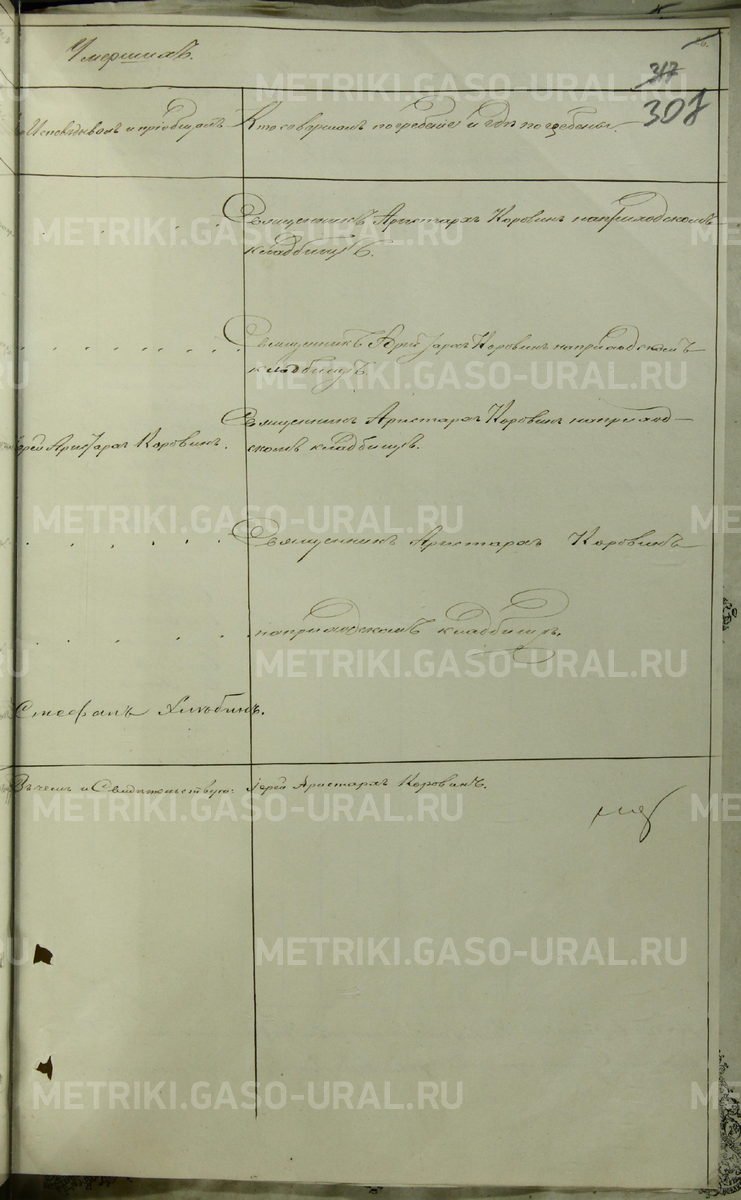 Умершихъ.
317
307
Исповѣдывалъ и пріобщалъ
Кто совершалъ погребеніе и гдѣ погребены.
Священникъ Аристархъ Коровинъ на приходскомъ
кладбищѣ.
Священникъ Аристархъ Коровинъ на приходскомъ
кладбищѣ.
Священникъ Аристархъ Коровинъ на приход-
скомъ кладбищѣ.
Іерей Аристархъ Коровинъ.
Священникъ Аристархъ Коровинъ
на приходскомъ кладбищѣ.
Стефанъ
Въ чемъ и Свидѣтельствую: Іерей Аристархъ Коровинъ.
METRIKI.GASO-URAL.RU